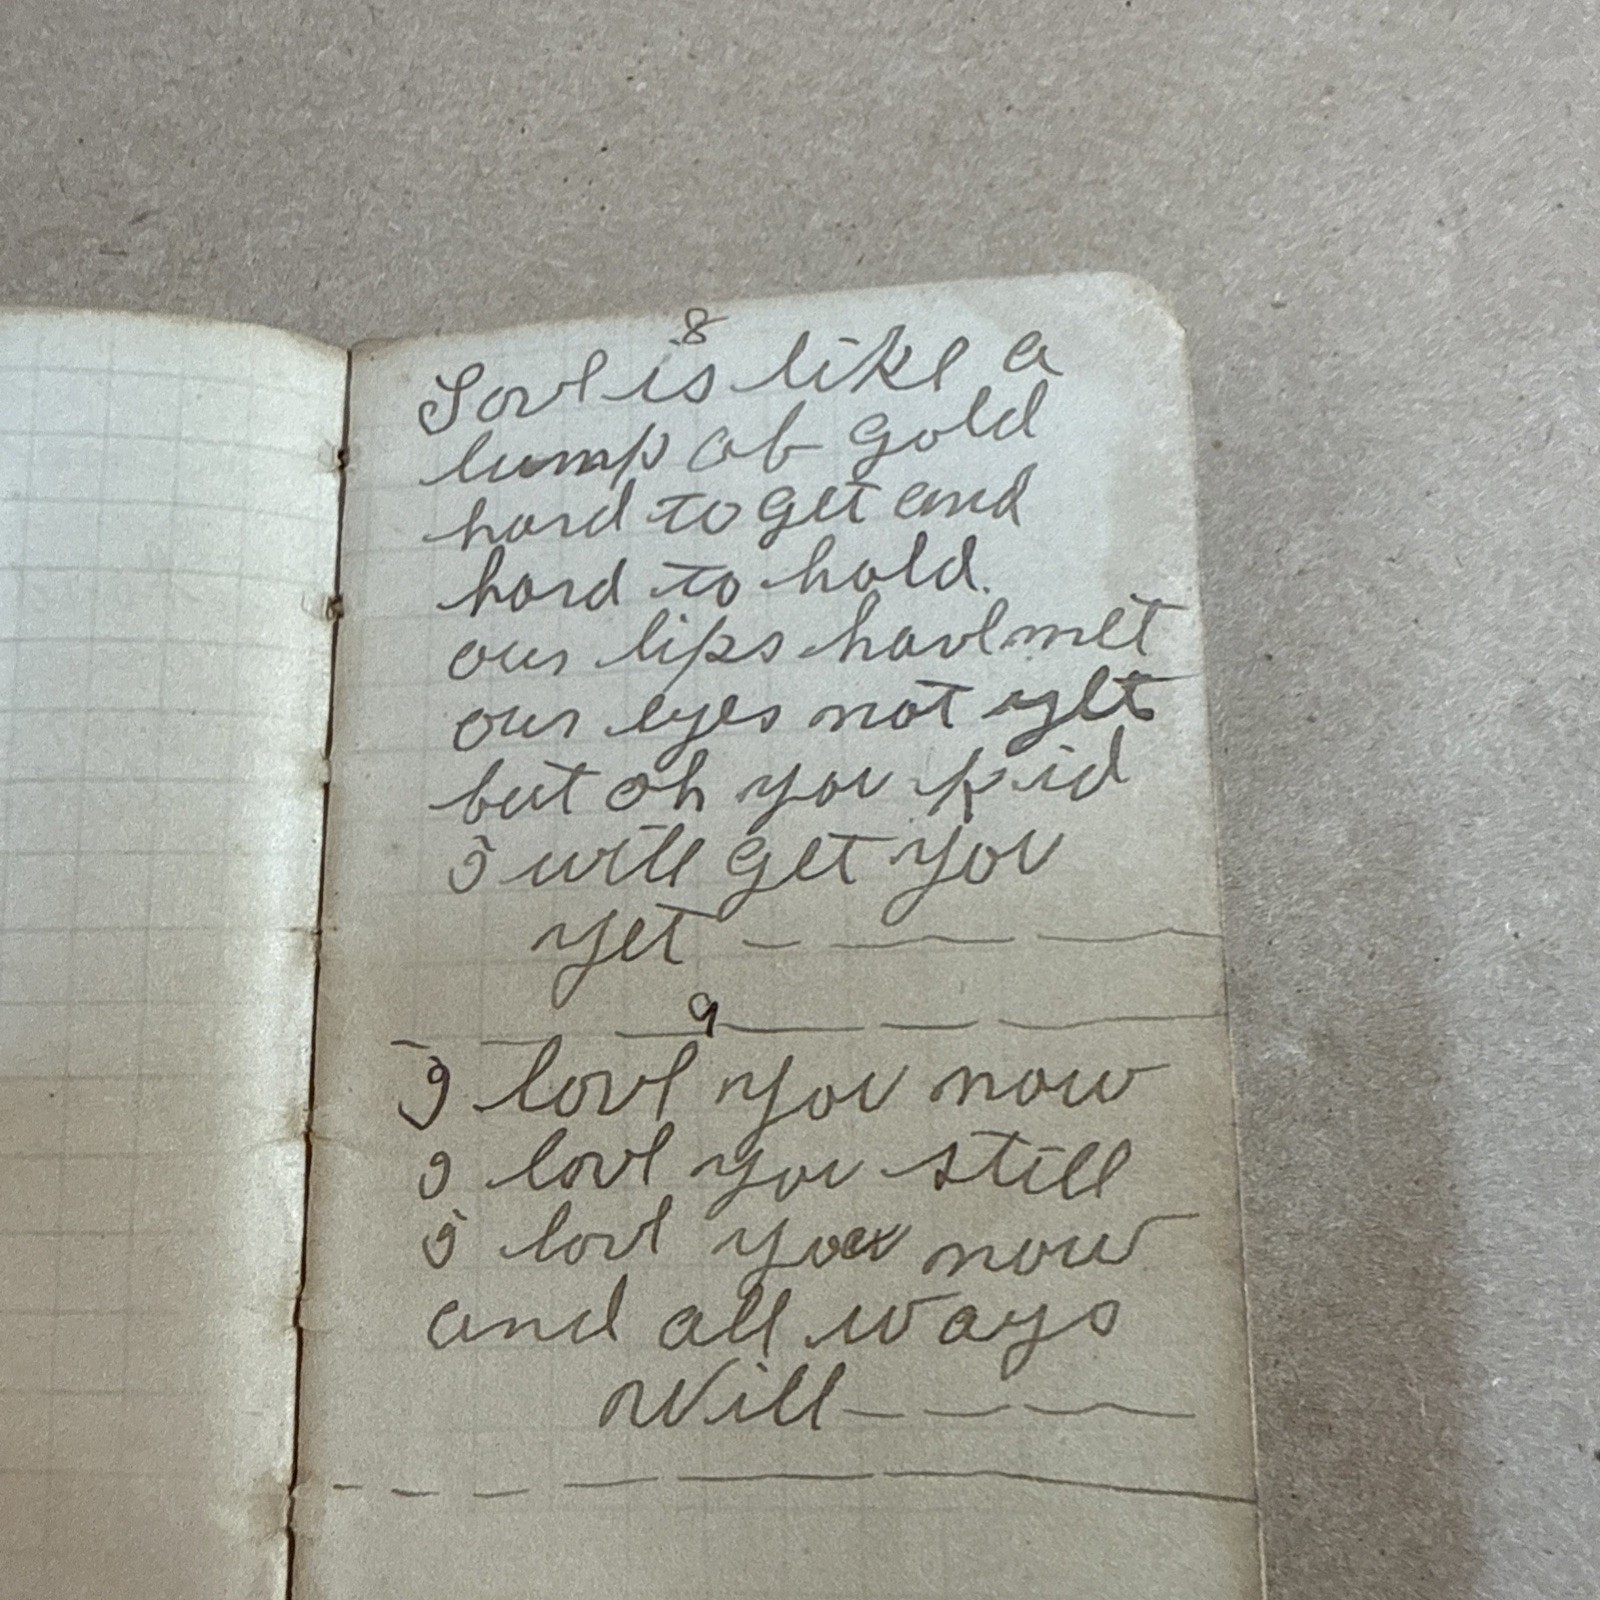 8
Love is like a
lump of gold
hard to get and
hard to hold.
our lips have met
our eyes not yet
but oh you kid
I will get you
yet
9
I love you now
I love you still
I love you now
and all ways
Will